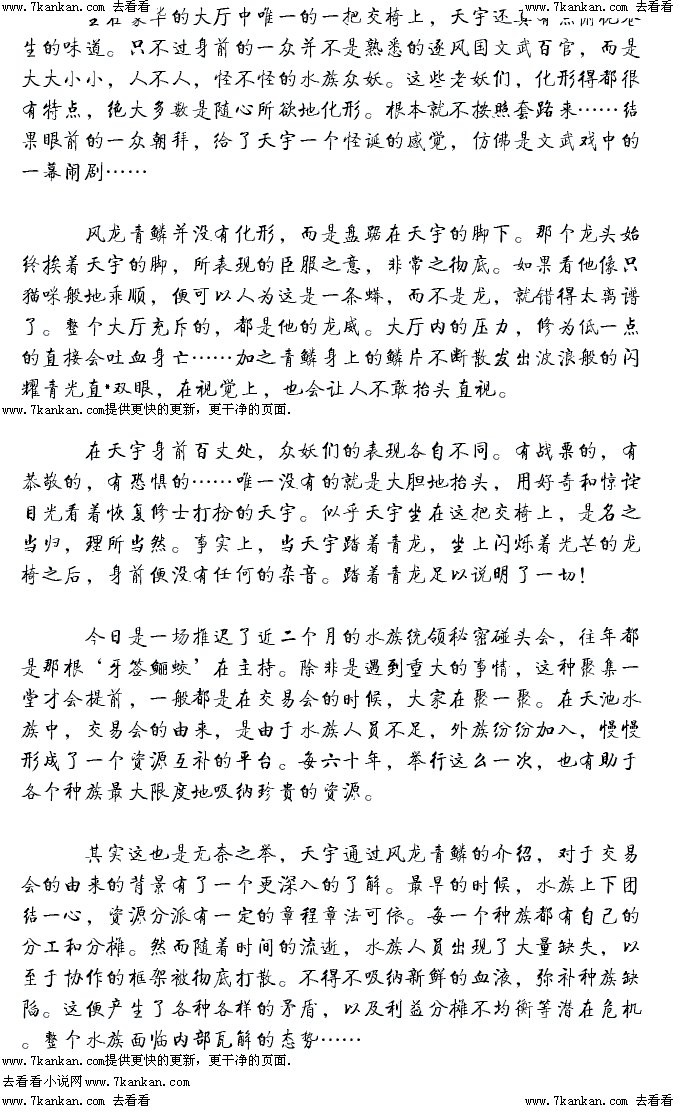 www.7kankan.com 去看看 www.7kankan.com 去看看
的大厅中唯一的一把交椅上，天宇还
生的味道。只不过身前的一众并不是熟悉的逐风国文武百官，而是
大大小小，人不人，怪不怪的水族众妖。这些老妖们，化形得都很
有特点，绝大多数是随心所欲地化形。根本就不按照套路来……结
果眼前的一众朝拜，给了天宇一个怪诞的感觉，仿佛是文武戏中的
一幕闹剧……
风龙青鳞并没有化形，而是盘踞在天宇的脚下。那个龙头始
终挨着天宇的脚，所表现的臣服之意，非常之彻底。如果看他像只
猫咪般地乖顺，便可以人为这是一条蛛，而不是龙，就错得太离谱
了。整个大厅充斥的，都是他的龙威。大厅内的压力，修为低一点
的直接会吐血身亡……加之青鳞身上的鳞片不断散发出波浪般的闪
耀青光直·双眼，在视觉上，也会让人不敢抬头直视。
www.7kankan.com提供更快的更新，更干净的页面.
在天宇身前百丈处，众妖们的表现各自不同。有战栗的，有
恭敬的，有恐惧的……唯一没有的就是大胆地抬头，用好奇和惊诧
目光看着恢复修士打扮的天宇。似乎天宇坐在这把交椅上，是名之
当归，理所当然。事实上，当天宇踏着青龙，坐上闪烁着光芒的龙
椅之后，身前便没有任何的杂音。踏着青龙足以说明了一切！
今日是一场推迟了近二个月的水族统领秘密碰头会，往年都
是那根‘牙签鲡蛟’在主持。除非是遇到重大的事情，这种聚集一
堂才会提前，一般都是在交易会的时候，大家在聚一聚。在天池水
族中，交易会的由来，是由于水族人员不足，外族纷纷加入，慢慢
形成了一个资源互补的平台。每六十年，举行这么一次，也有助于
各个种族最大限度地吸纳珍贵的资源。
其实这也是无奈之举，天宇通过风龙青鳞的介绍，对于交易
会的由来的背景有了一个更深入的了解。最早的时候，水族上下团
结一心，资源分派有一定的章程章法可依。每一个种族都有自己的
分工和分摊。然而随着时间的流逝，水族人员出现了大量缺失，以
至于协作的框架被彻底打散。不得不吸纳新鲜的血液，弥补种族缺
陷。这便产生了各种各样的矛盾，以及利益分摊不均衡等潜在危机
。整个水族面临内部瓦解的态势……
www.7kankan.com提供更快的更新，更干净的页面.
去看看小说网www.7kankan.com
www.7kankan.com 去看看 www.7kankan.com 去看看